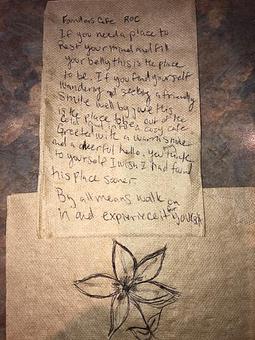 Founders Cafe ROC
If you need a place to
Rest your mind and fill
your belly this is the place
to be. If you find yourself
wandering and seeking a friendly
smile well by jove this
is the place out of the
cold a cozy cafe
Greeted with a warm smile
and a cheerful hello. you think
to yourself I wish I had found
this place sooner.
By all means walk on
in and experience it yourself